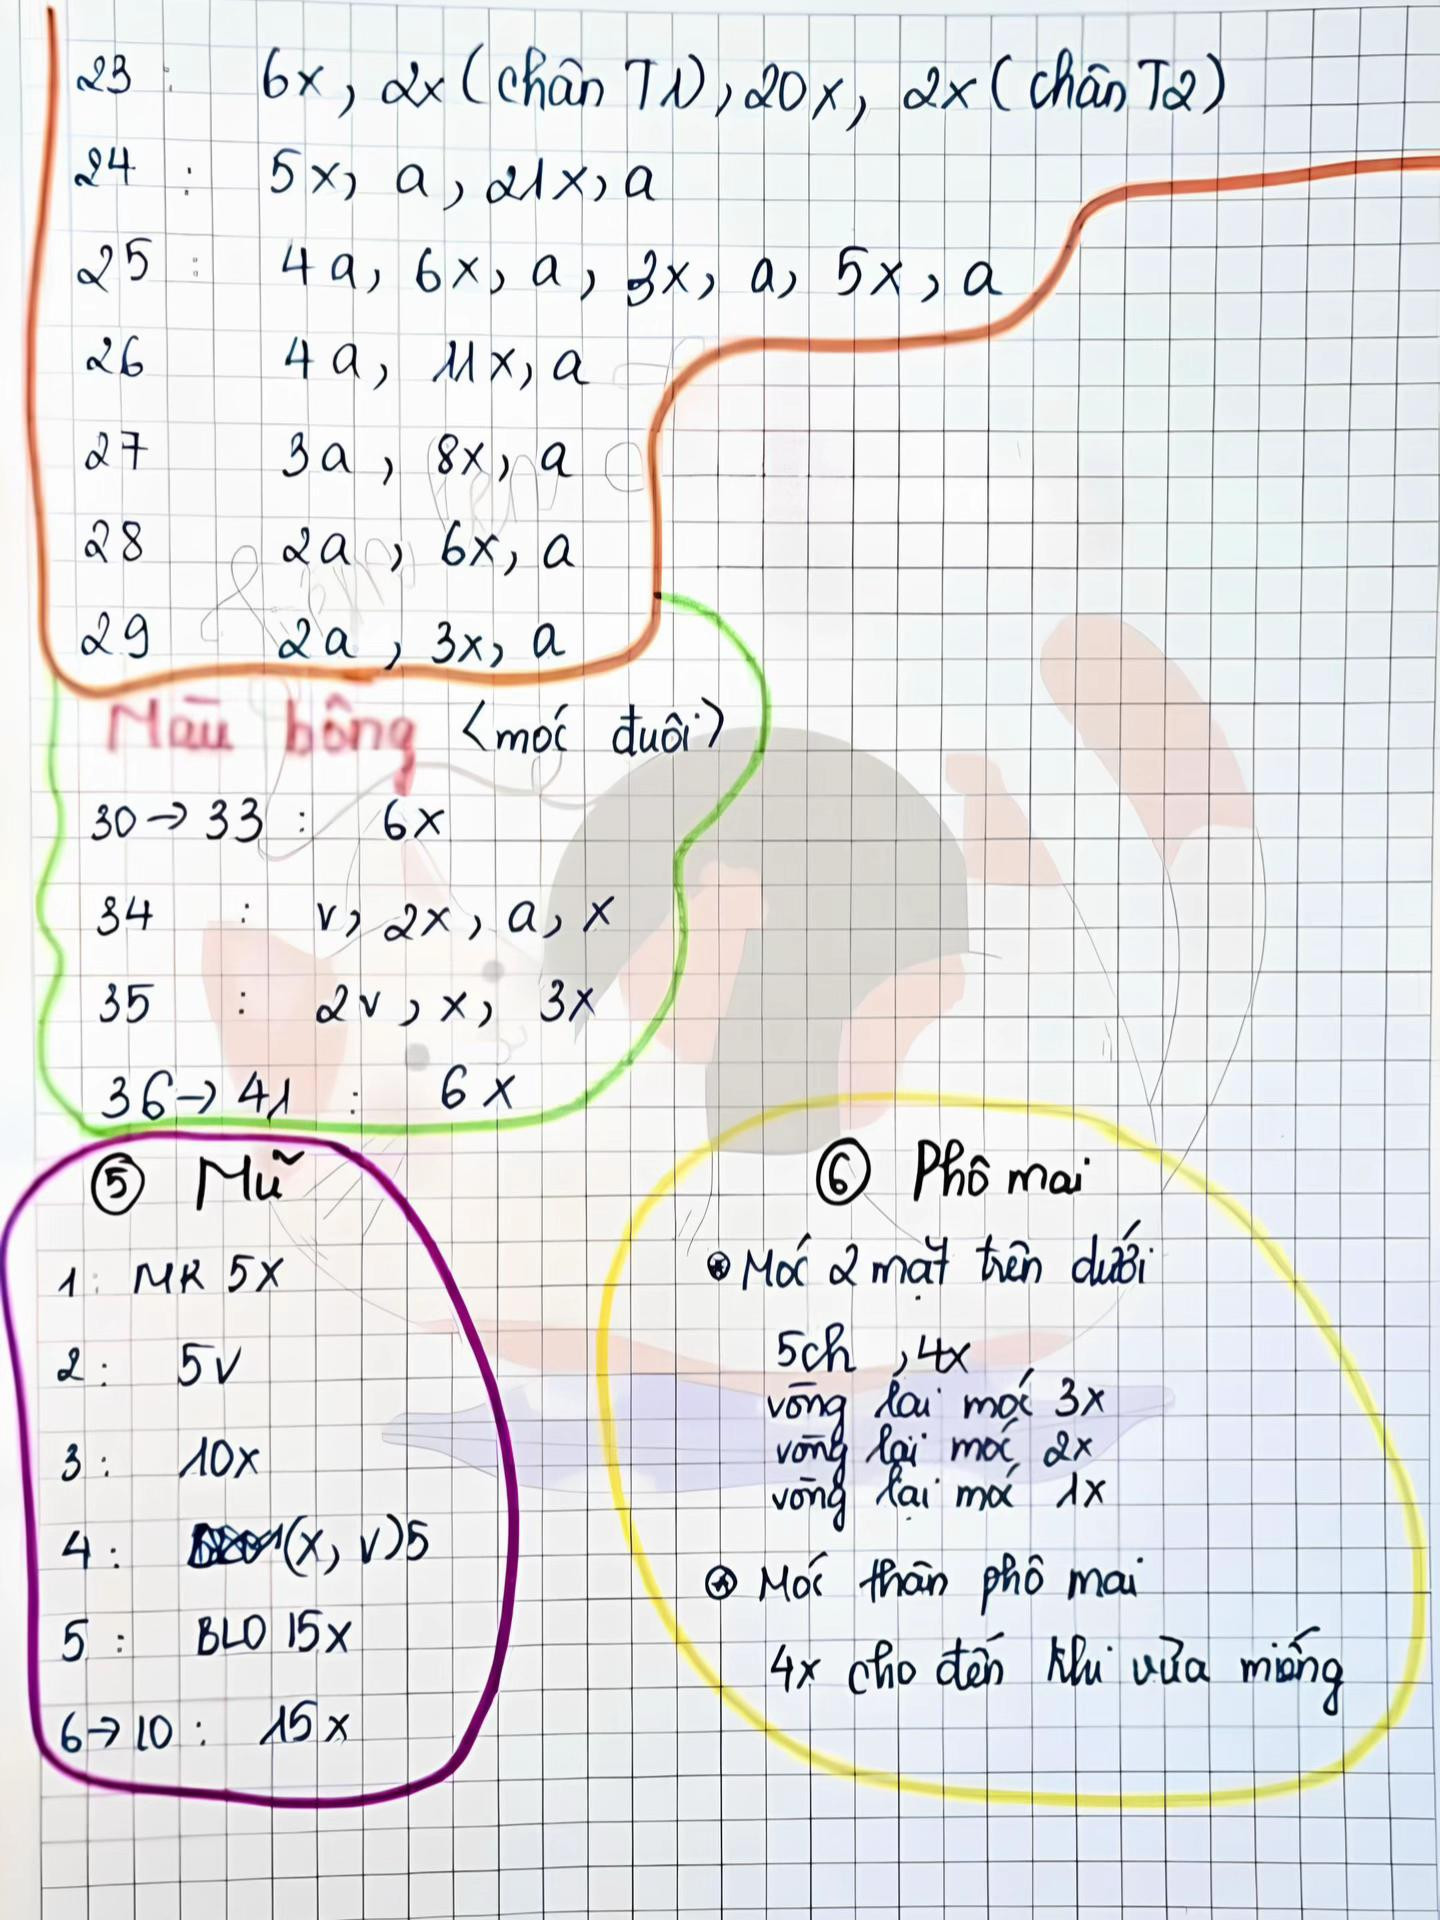 23 : 6x, 2x (chân T1), 20x, 2x (chân T2)
24 : 5x, a, 21x, a
25 : 4a, 6x, a, 3x, a, 5x, a
26 4a, 11x, a
27 3a, 8x, a
28 2a, 6x, a
29 2a, 3x, a
Màu hồng <móc đuôi>
30 → 33 : 6x
34 : v, 2x, a, x
35 : 2v, x, 3x
36 → 41 : 6x
⑤ Mũ
1: MR 5x
2: 5v
3: 10x
4: (x, v)5
5: BLO 15x
6 → 10: 15x
⑥ Phô mai
Móc 2 mặt trên dưới
5ch, 4x
vòng lại móc 3x
vòng lại móc 2x
vòng lại móc 1x
Móc thân phô mai
4x cho đến khi vừa miếng